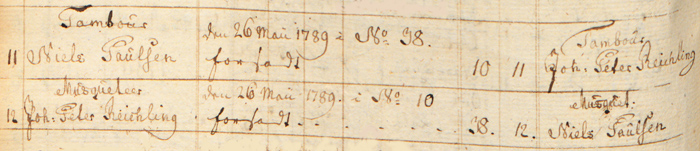 Tambour den 26 Maii 1789 i No 38. Tambour
11 Niels Paulsen forsadt 10 11 Joh: Peter Reichling
Musqueteer den 26 Maii 1789. i No 10 Musquet:
12 Joh: Peter Reichling forsadt. . . . . 38. 12. Niels Paulsen